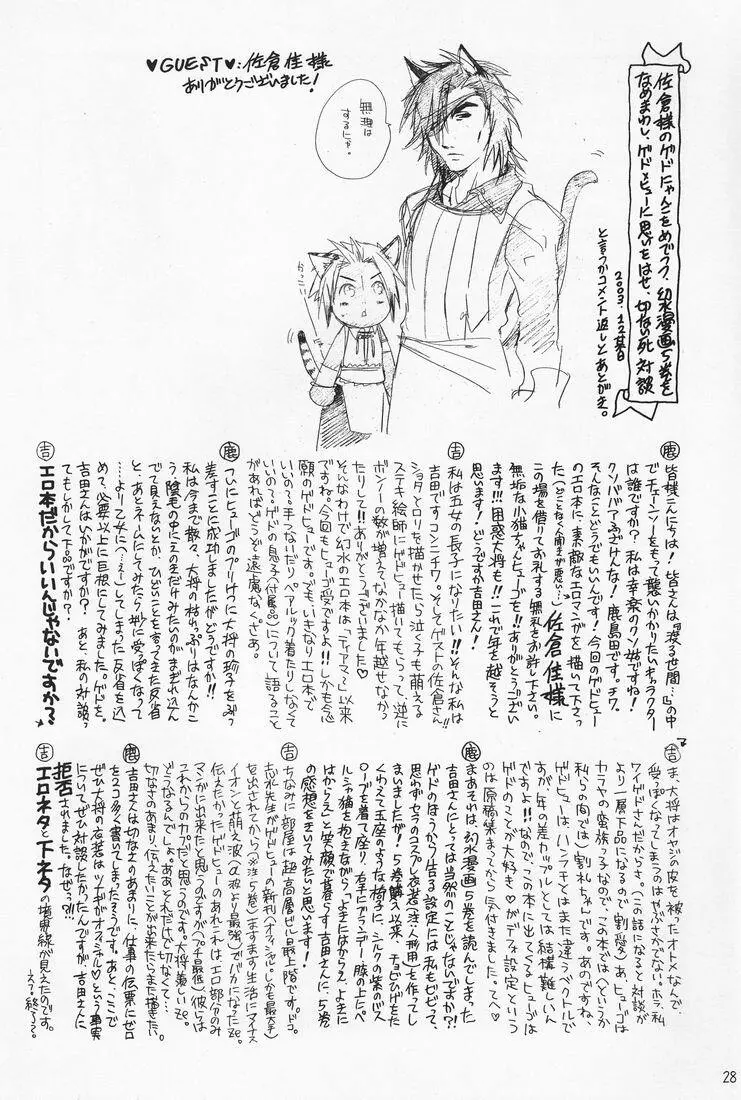 ♥GUEST♥:佐倉佳様
ありがとうございました!
無理は
するにゃ。
かっこいい
佐倉様のゲドにゃんこをめでつつ、幻水漫画5巻を
なめまわし、ゲド×ヒューに思いをはせ、切ない死対談
2003.12某日
と言うかコメント返しとあとがき。
鹿
皆様こんにちは!皆さんは『渡る世間…』の中
でチェーンソーをもって襲いかかりたいキャラクター
は誰ですか?私は幸楽のクソ姑ですね!
クソババアふざけんな!鹿島田です。チワ。
そんなことどうでもいいんです!今回のゲドヒュー
のエロ本に、素敵なエロマンガを描いて下さっ
た
佐倉佳様に
この場を借りてお礼する無礼をお許し下さい。
無垢な小猫ちゃんヒューゴを!!ありがとうござい
ます!!!困惑大将も!!これで年を越そうと
思います!どうですか吉田さん!
吉
私は五女の長子になりたい!!そんな私は
吉田ですコンニチワ。そしてゲストの佐倉さん!!
ショタとロリを描かせたら泣く子も萌える
ステキ絵師にゲドヒュー描いてもらって、逆に
ボンノーの数が増えてなかなか年越せなかっ
たりして!!ありがとうございました♡
そんなわけで幻水のエロ本は「ティアマ〜」以来
ですね。今回もヒューゴ受ですよ!!しかも念
願のゲドヒューです。でも、いきなりエロ本で
いいの?手つないだり、ペアルック着たりしなくて
いいの?ゲドの息子(付属品)について語ること
があればどうぞ遠慮なくさあ。
鹿
ついにヒューゴのプリけつに大将の珍子をぶっ
差すことに成功しましたがどうですか!!
私は今まで散々、大将の枯れっぷりはなんかこ
う、陰毛の中にえのきだけみたいのがまぎれ込ん
で見えないのとか、ひどいことを言ってきた反省
と、あとネームにしてみたら妙に受っぽくなって
…より乙女に(うえー)してしまった反省を込
めて、必要以上に巨根にしてみました。ゲドを。
吉田さんはいかがですか?あと、私の対談っ
てもしかして下品ですか?
吉
エロ本だからいいんじゃないですか?
吉
ま、大将はオヤジの皮を被ったオトメなんで、
受っぽくなってしまうのはやぶさかでない。ホラ、私
ワイゲドさんだからさ。(この話になると対談が
より一層下品になるので割愛)あ、ヒューゴは
カラヤの蛮族っ子なので、この本では(というか
私らの間では)割礼ちゃんです。あのですね、
ゲドヒューは、ハンデチとはまた違うベクトルで
すが、年の差カップルとしては結構難しいん
ですよ!!なので、この本に出てくるヒューゴは
ゲドのことが大好き♡がデフォ設定という
のは原稿集まってから気付きました。てへ♡
鹿
まあそれは、幻水漫画5巻を読んでしまった
吉田さんにとっては当然のことじゃないですか?!
ゲドのほうから告る設定には私もビビって、
思わずセラのコスプレ衣装(注:人形用)を作ってし
まいましたが!5巻購入以来、チョビひげをた
くわえて玉座のような椅子に、シルクの紫のバス
ローブを着て座り、右手にブランデー、膝の上にペ
ルシャ猫を抱えながら「よきにはからえ、よきに
はからえ」と笑顔で暮らす吉田さんに、5巻
の感想をきいてみたいと思います!
吉
ちなみに部屋は超高層ビル最上階です。ドコ。
志水先生がゲドヒューの新刊(オフィシャル。しかも最大手)
を出されてから(※注:5巻)ますます生活にマイナス
イオンと萌え波(α波より最強)でバカになったZe。
伝えたかったゲドヒューのあれこれは、エロ部分のみ
マンガに出来たと思うのですが(プチ最低)彼らは
これからの力だと思うのです。大将羨しいZe。
どうなるんでしょ。ああそんだけで切なくて…
切なさのあまり、伝えたいことが出来たらまた描きたい。
鹿
吉田さんは切なさのあまりに、仕事の伝票にゼロ
を2コ多く書いてしまったそうです。あと、ここで
ぜひ大将の衣装はツナギがオフィシャル♡という事実
についてぜひ対談したかったんですが、吉田さんに
拒否されました。なぜっ?!!!
吉
エロネタと下ネタの境界線が見えたのです。
28